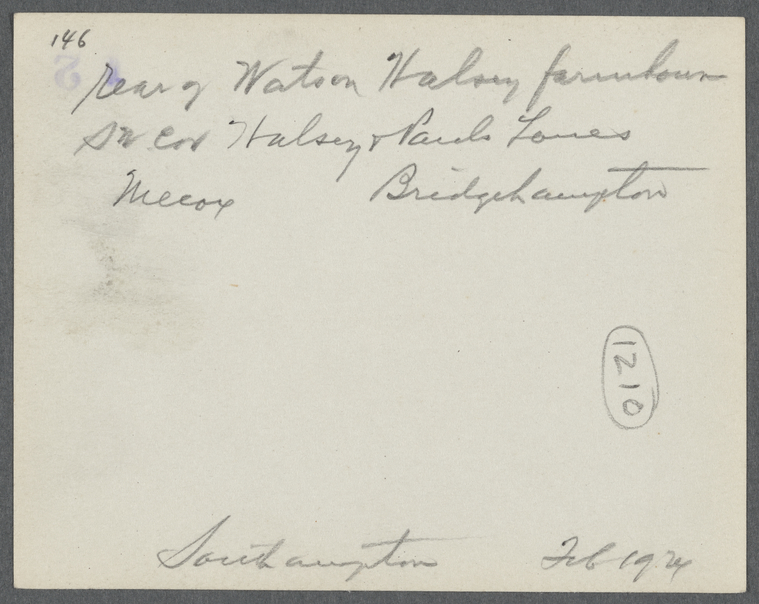 146
rear of Watson Halsey farmhouse
SW cor Halsey & Pauls Lanes
Mecox Bridgehampton
1210
Southampton Feb 1924